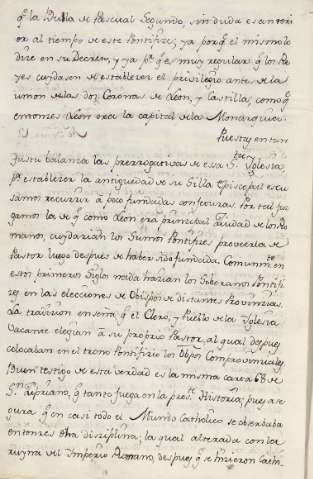 q.e la Bulla de Pascual Segundo, sin duda es anteri
or al tiempo de este Pontifice; ya porq.e el mismo lo
dice en su Decreto, y ya p.r q.e es muy regular q.e los Re
yes cuydasen de establecer el privilegio antes de la
union de las dos Coronas de Leon, y Castilla, como q.e
entonces Leon era la capital de la Monarquia.
Puestas en tan
justa balanza las prerrogativas de esa S.ta Iglesia,
p.a establecer la antiguedad de su Silla Episcopal escu
samos recurrir a poco fundadas conjeturas. Por tal juz
gamos la de q.e como Leon era principal Ciudad de los Ro
manos, cuydarian los Sumos Pontifices proveerla de
Pastor luego despues de haber sido fundada. Comunm.te en
estos primeros Siglos nada hacian los Soberanos Pontifi
ces en las elecciones de Obispos de distantes Provincias.
La tradicion enseña q.e el Clero, y Pueblo de la Iglesia
Vacante elegian a su proprio Pastor, al qual despues
colocaban en el trono Pontificio los Obpos Comprovinciales.
Buen testigo de esta verdad es la misma carta 68 de
S. Cipriano, q.e tanto juega en la pres.te Historia; pues ase
gura q.e en casi todo el Mundo Catholico se observaba
entonces esta disciplina; la qual alterada con la
ruyna del Imperio Romano, despues q.e se hicieron Cath.